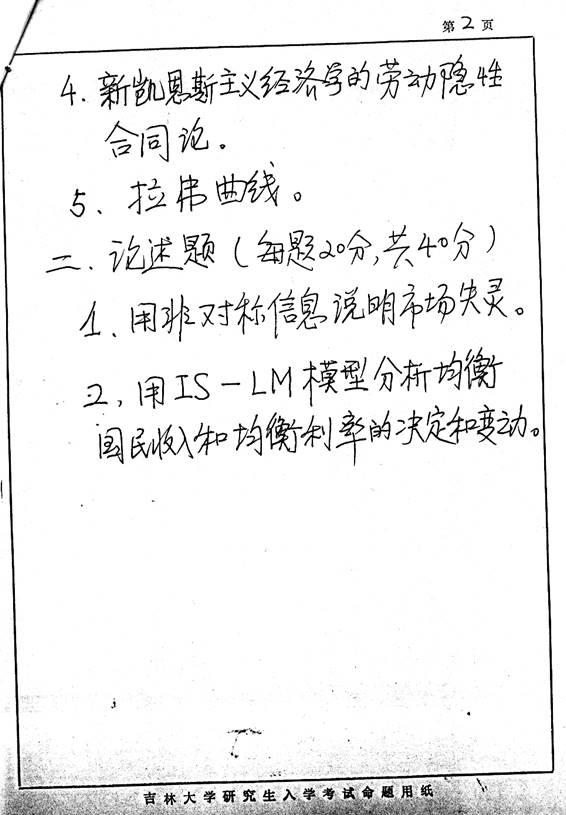 第2页
4、新凯恩斯主义经济学的劳动隐性
合同论。
5、拉弗曲线。
二、论述题(每题20分,共40分)
1、用非对称信息说明市场失灵。
2,用IS-LM模型分析均衡
国民收入和均衡利率的决定和变动。
吉林大学研究生入学考试命题用纸